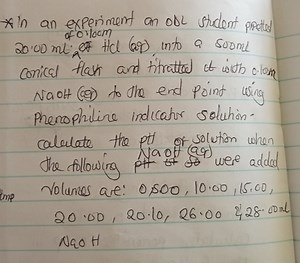 *In an experiment an ODL student pipetted
of 0.100M
20.00 mL HCl (aq) into a 500ml
Conical flask and titrated it with 0.100M
NaOH (aq) to the end point using
Phenophiline indicator solution-
calculate the pH of solution when
the following NaOH (aq) were added
Volumes are: 0,500, 10.00, 15.00,
20.00, 20.10, 26.00 & 28.00ml
NaOH